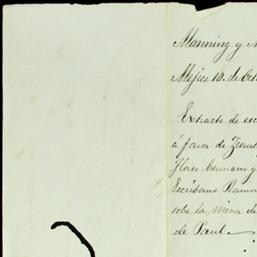 Manning y M
Mejico 10. de Oct
Extracto de esc
á favor de Zurut
Flores hermano y
Escribano Ramon
sobre la mina de
de Paul